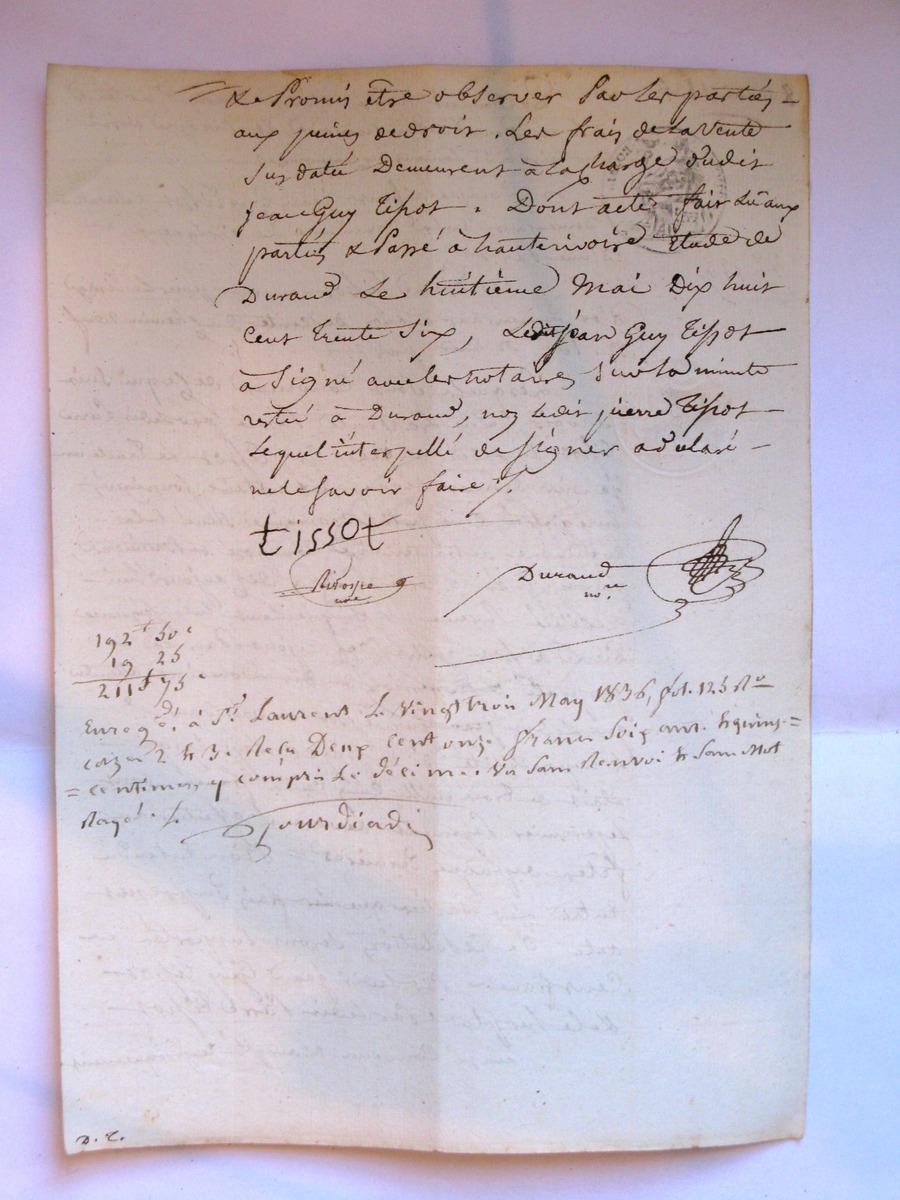 & Promis être observer Par les parties
aux peines de droit. Les frais de la Vente
Sus datée Demeurent à la charge dudit
jean Guy Tissot. Dont acte, fait Lu aux
parties & Passé à hauterivoire Etude de
Durand Le huitième Mai Dix huit
Cent trente Six, Ledit jean Guy Tissot
à Signé avec les notaires Sur la minute
restée à Durand, non ledit pierre Tissot
Lequel interpellé de signer a déclaré
ne le Savoir faire ./.
tissot
Durand
no.re
192 f 50 c
19 25
211 f 75 c
Enregé. à St. Laurent Le Vingt trois May 1836, fol. 125 Ro
cazes 2 & 3. Reçu Deux Cent onze francs Soixante & quinze
centimes y compris Le décime. Vu Sans Renvoi & Sans Mot
Rayé.
D. T.